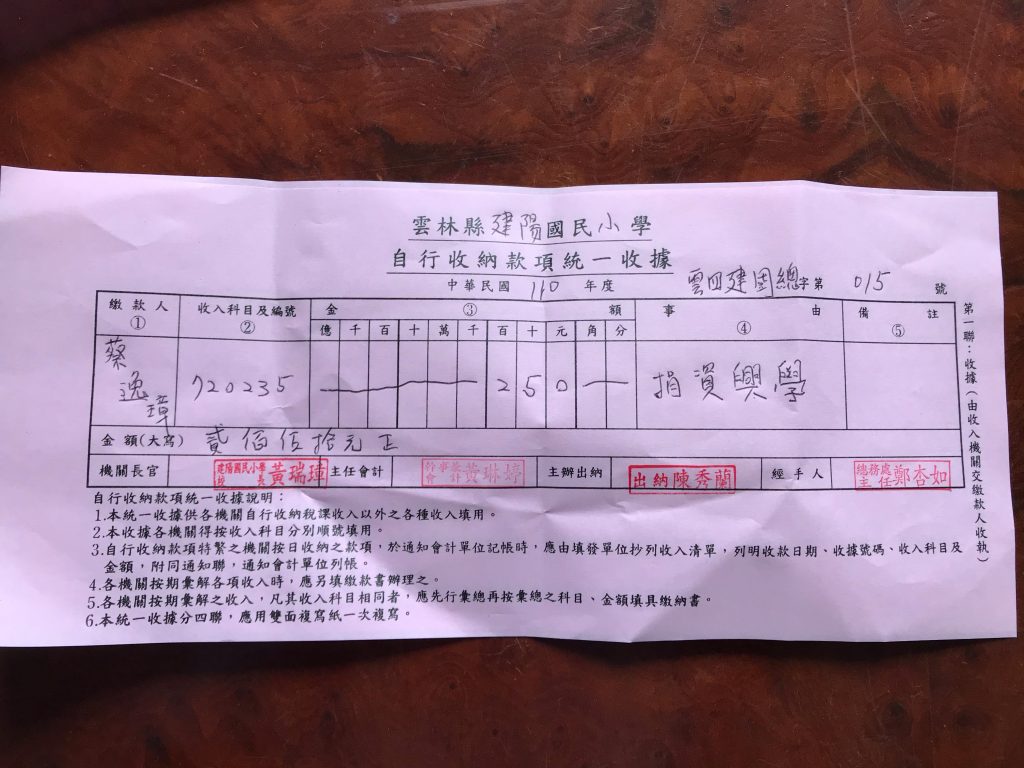 雲林縣建陽國民小學
自行收納款項統一收據
中華民國 110 年度 雲四建國總字第 015 號
繳款人 ① 收入科目及編號 ② 金 ③ 額 事由 ④ 備註 ⑤
億 千 百 十 萬 千 百 十 元 角 分
蔡逸璋 720235 2 5 0 捐資興學
金額(大寫) 貳佰伍拾元正
機關長官 建陽國民小學校長黃瑞璋 主任會計 幹事兼會計黃琳婷 主辦出納 出納陳秀蘭 經手人 總務處主任鄭杏如
第一聯：收據（由收入機關交繳款人收執）
自行收納款項統一收據說明：
1.本統一收據供各機關自行收納稅課收入以外之各種收入填用。
2.本收據各機關得按收入科目分別順號填用。
3.自行收納款項特繁之機關按日收納之款項，於通知會計單位記帳時，應由填發單位抄列收入清單，列明收款日期、收據號碼、收入科目及
金額，附同通知聯，通知會計單位列帳。
4.各機關按期彙解各項收入時，應另填繳款書辦理之。
5.各機關按期彙解之收入，凡其收入科目相同者，應先行彙總再按彙總之科目、金額填具繳納書。
6.本統一收據分四聯，應用雙面複寫紙一次複寫。